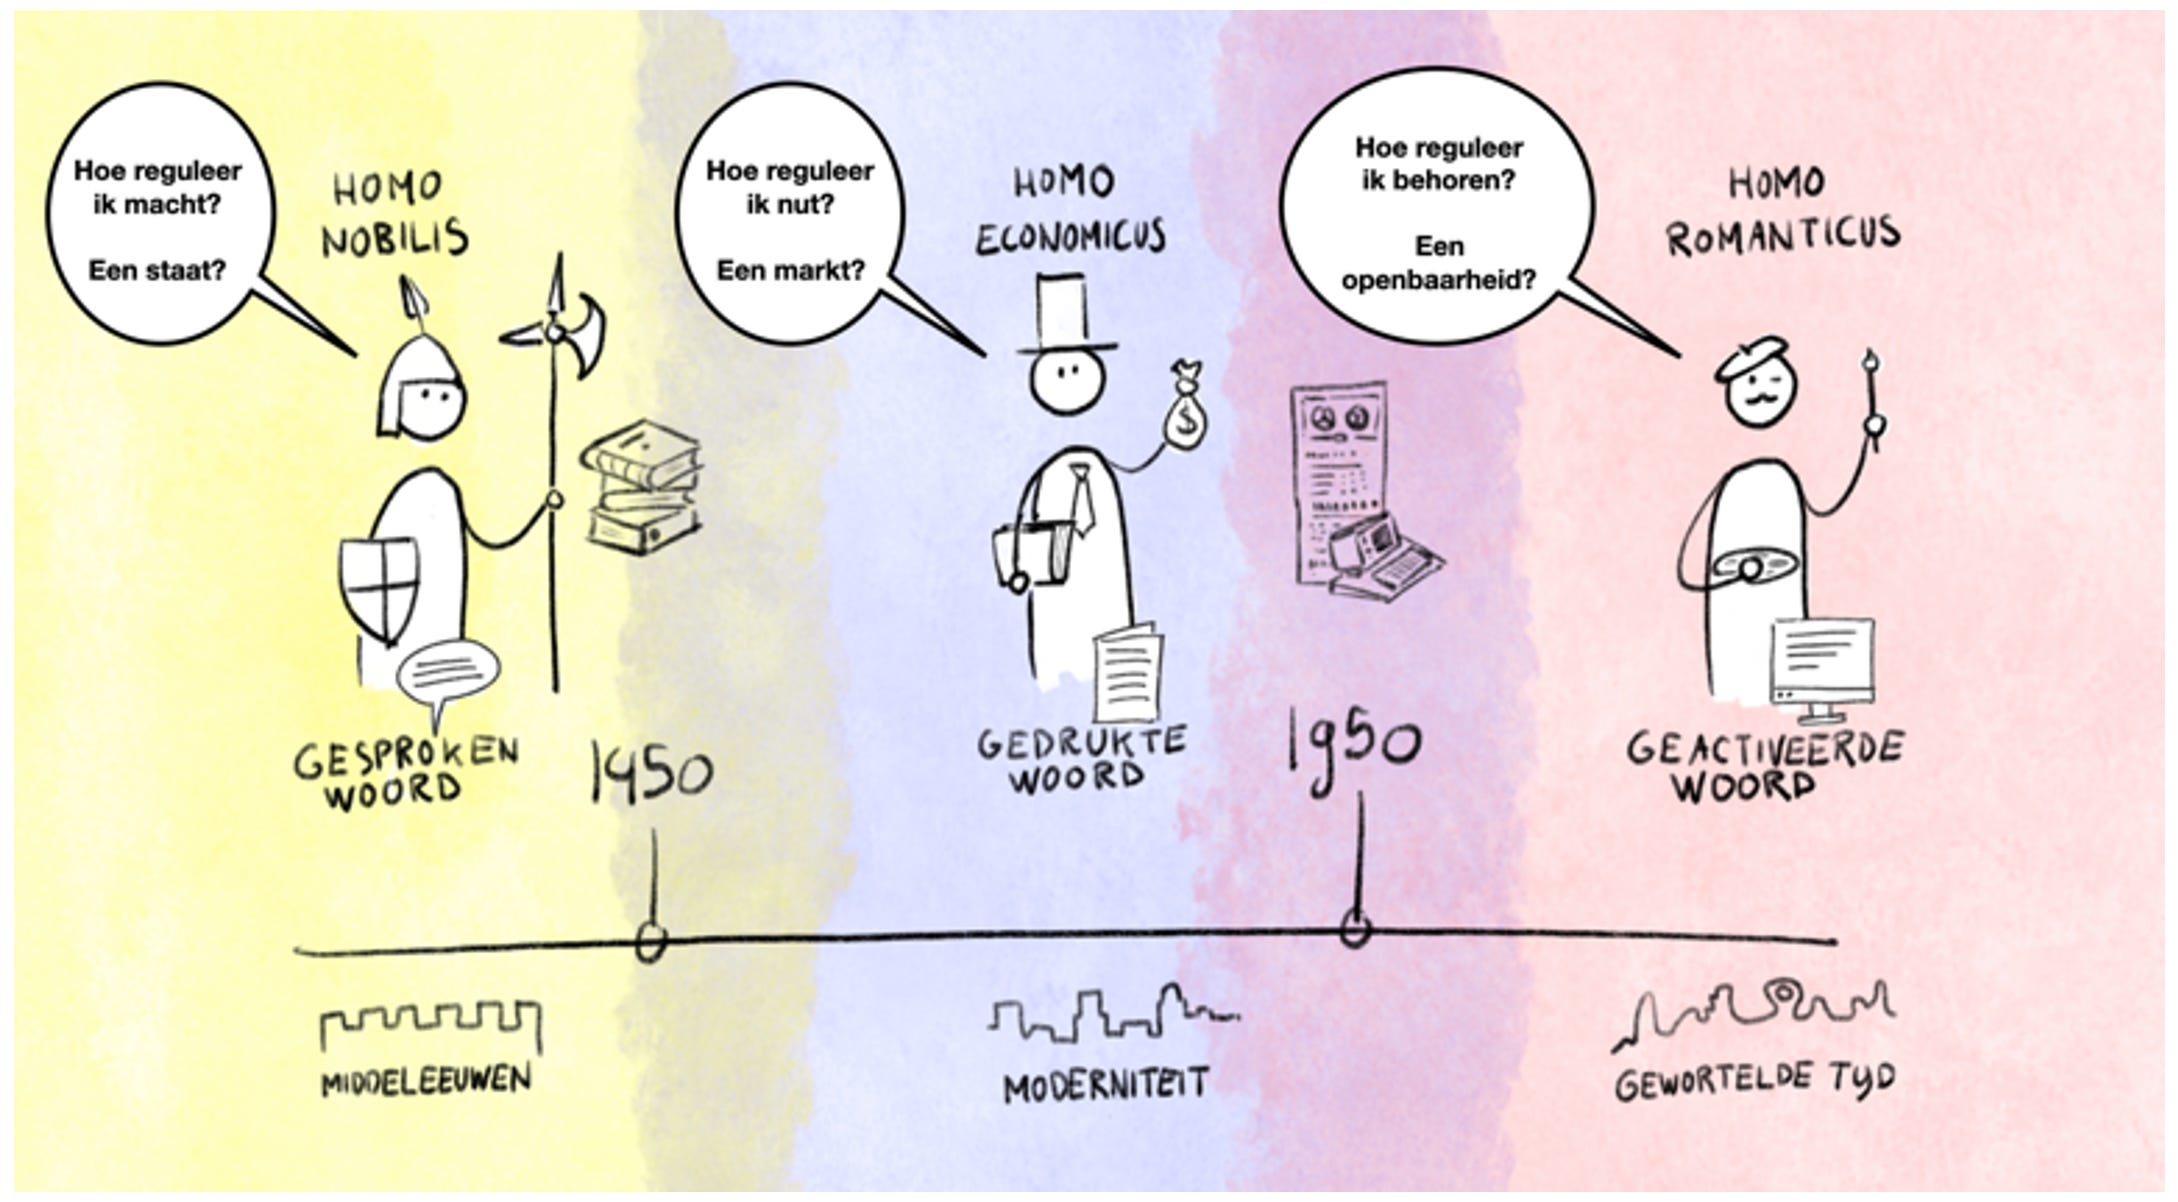 Hoe reguleer
ik macht?
Een staat?
HOMO
NOBILIS
Hoe reguleer
ik nut?
Een markt?
HOMO
ECONOMICUS
Hoe reguleer
ik behoren?
Een
openbaarheid?
HOMO
ROMANTICUS
$
GESPROKEN
WOORD
1450
GEDRUKTE
WOORD
1950
GEACTIVEERDE
WOORD
MIDDELEEUWEN
MODERNITEIT
GEWORTELDE TYD